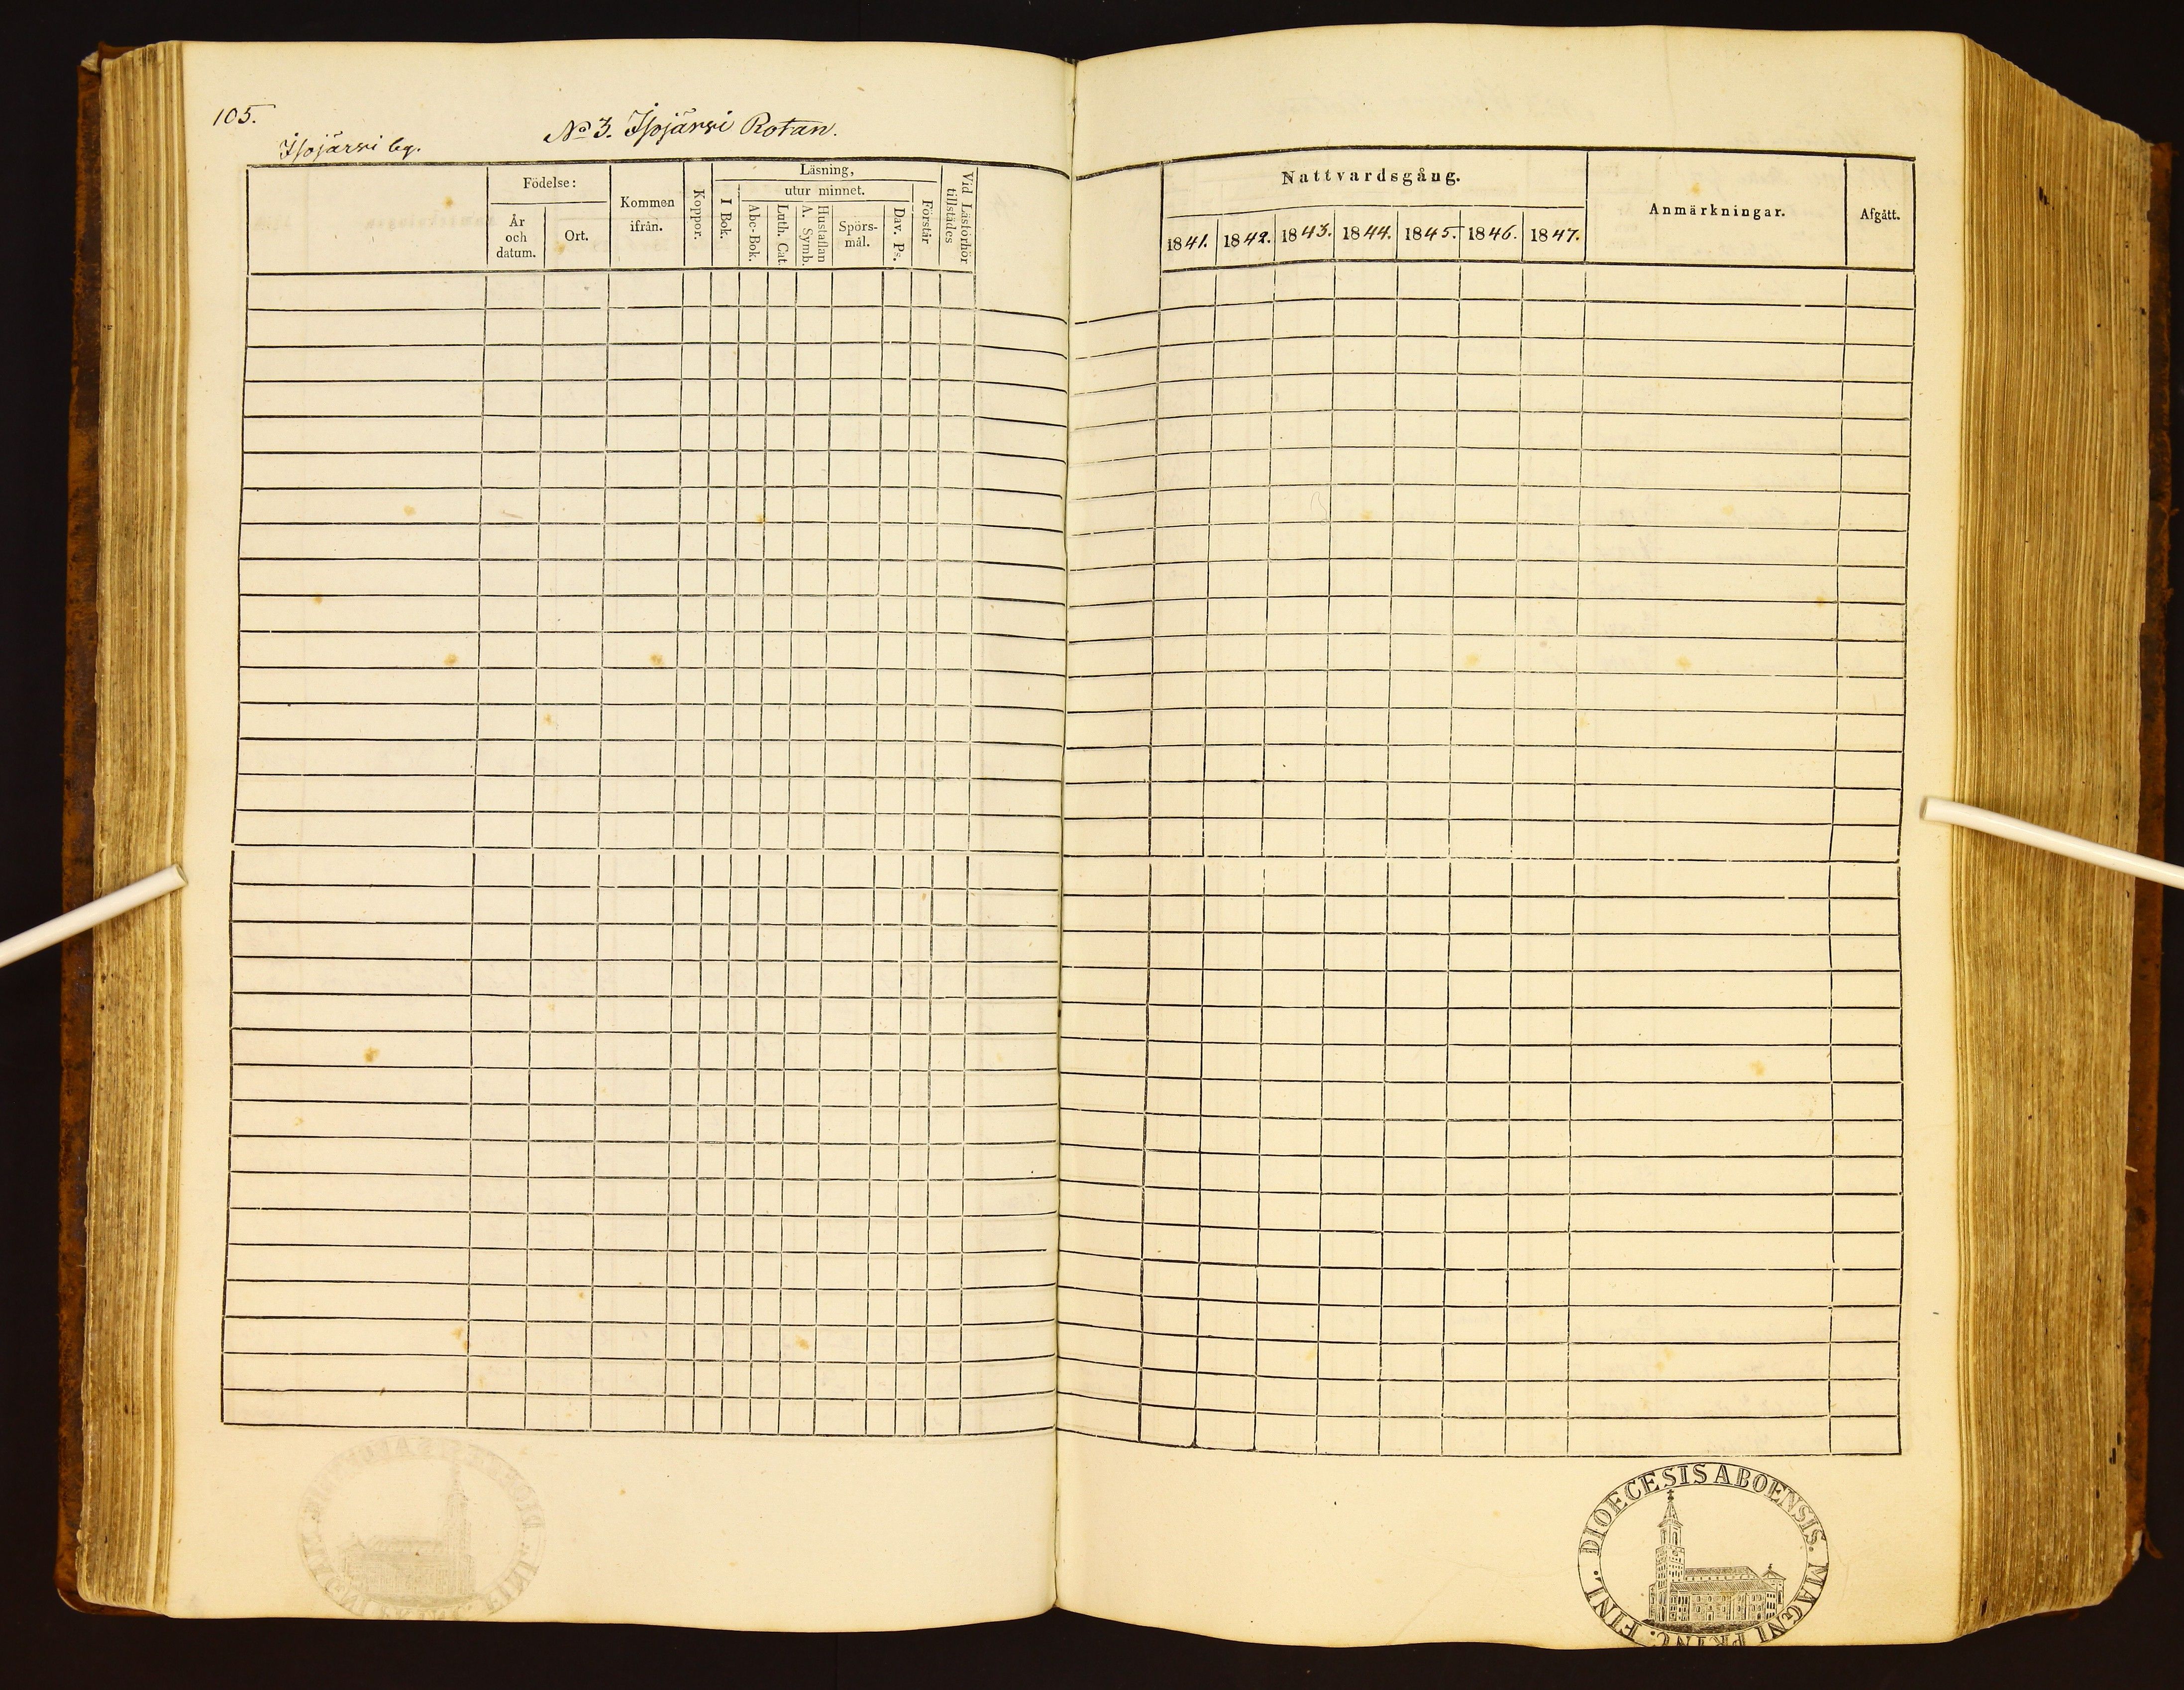 105.
No 3. Isojärvi Rotan.
Isojärvi by.
Födelse:
År och datum.
Ort.
Kommen ifrån.
Koppor.
Läsning,
I Bok.
utur minnet.
Abc-Bok.
Luth. Cat.
Hustaflan A. Symb.
Spörs-mål.
Dav. Ps.
Förstår
Vid Läsförhör tillstädes
Nattvardsgång.
1841. 1842. 1843. 1844. 1845. 1846. 1847.
Anmärkningar.
Afgått.
DIOECESIS ABOENSIS. MAGNI PRINC. FINL.